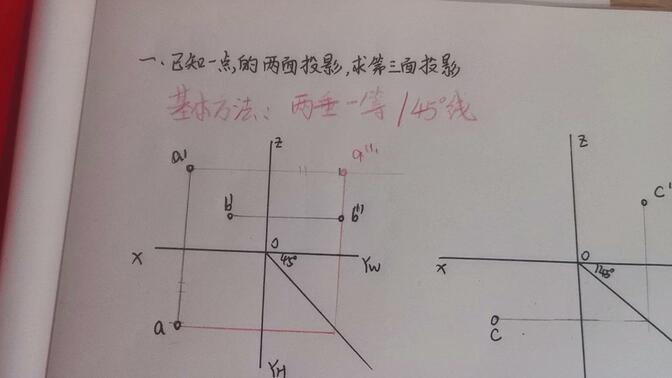 一、已知一点的两面投影,求第三面投影
基本方法:两垂一等/45°线
Z
a' a"
b' b"
X O 45° YW
a
YH
Z
c'
X O 45°
c